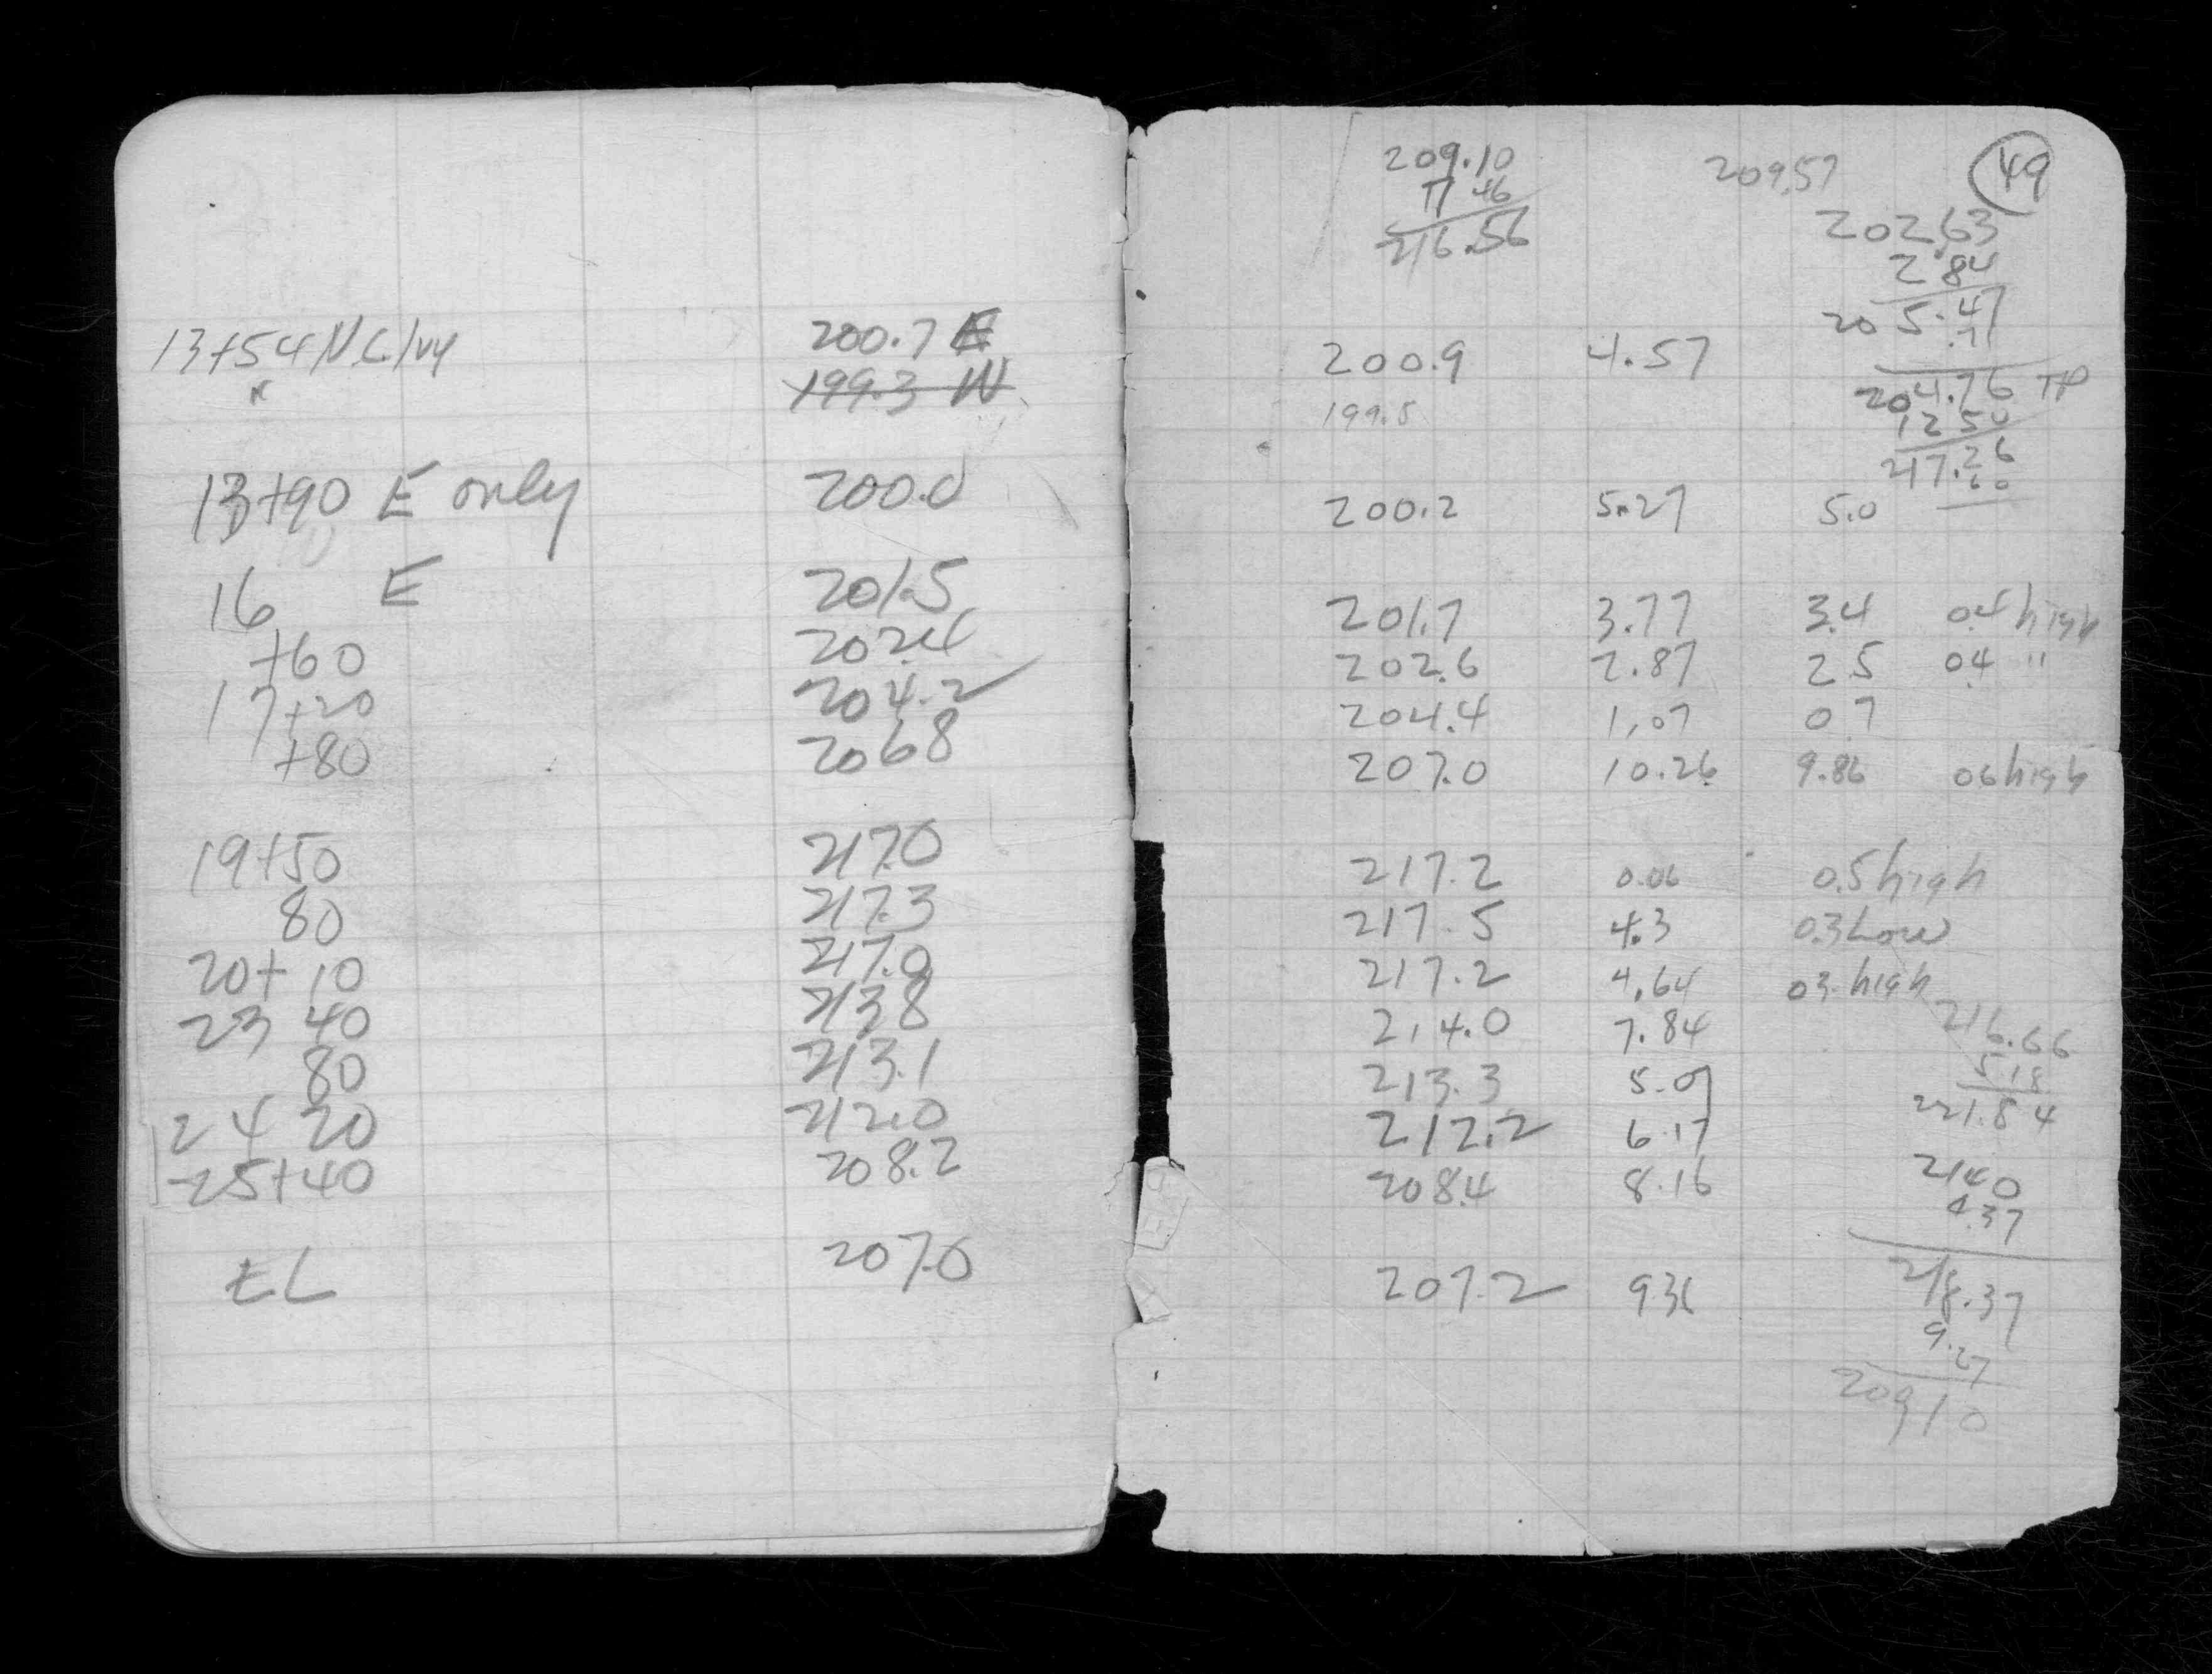 13+54 N.C/vy 200.7 E
x 199.3 W
13+90 E only 200.0
16 E 201.5
+60 202.4
17+20 204.2
+80 206.8
19+50 217.0
80 217.3
20+10 217.0
23 40 213.8
80 213.1
24 20 212.0
25+40 208.2
EL 207.0
209.10
7 46
216.56
209.57
49
202.63
2.84
205.47
.71
204.76 TP
12 50
217.26
60
200.9 4.57
199.5
200.2 5.27 5.0
201.7 3.77 3.4 0.4 high
202.6 2.87 2.5 0.4 "
204.4 1.07 0.7
207.0 10.26 9.86 06 high
217.2 0.06 0.5 high
217.5 4.3 0.3 Low
217.2 4.64 03 high
214.0 7.84
213.3 5.07
212.2 6.17
208.4 8.16
207.2 936
216.66
5 18
221.84
214.0
4.37
218.37
9.27
209 10